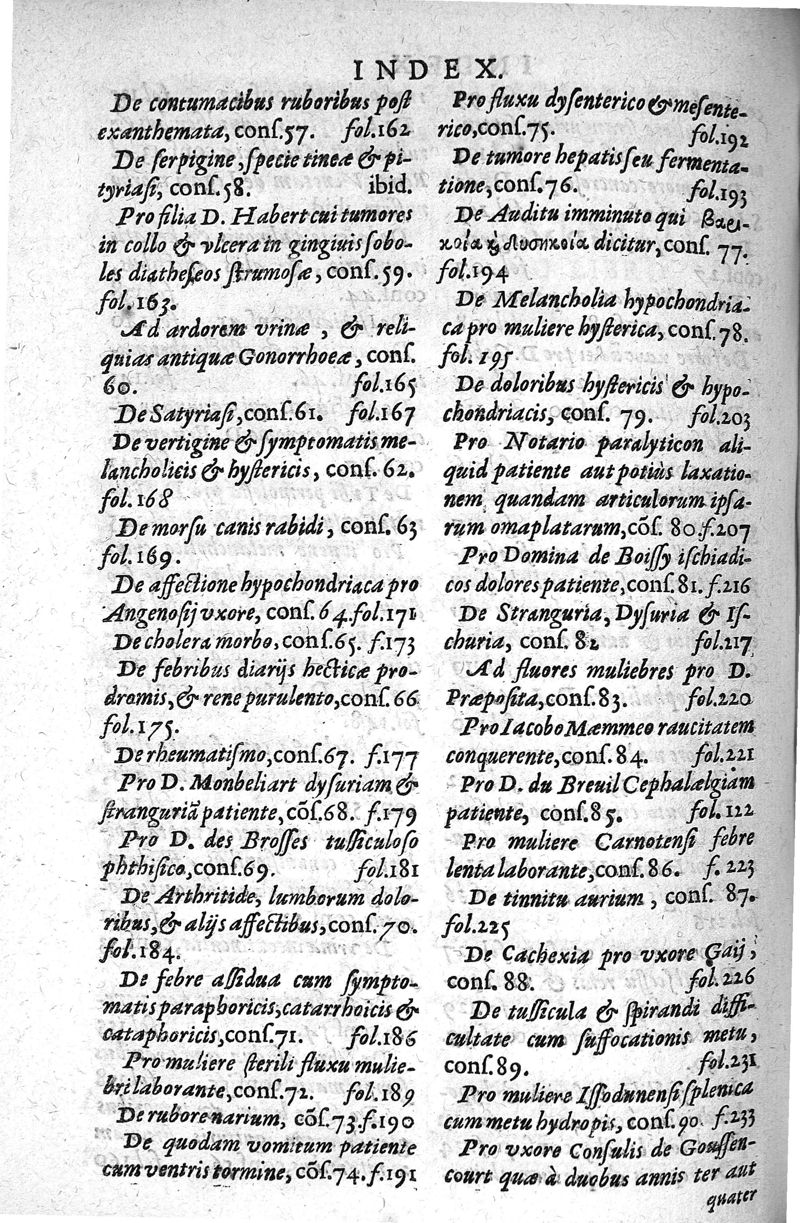 INDEX.
De contumacibus ruboribus poſt
exanthemata, conſ.57. fol.162
De ſerpigine, ſpecie tineæ & pi-
tyriaſi, conſ.58. ibid.
Pro filia D. Habert cui tumores
in collo & vlcera in gingiuis ſobo-
les diatheſeos ſtrumoſæ, conſ.59.
fol.163.
Ad ardorem vrinæ, & reli-
quias antiquæ Gonorrhoeæ, conſ.
60. fol.165
De Satyriaſi, conſ.61. fol.167
De vertigine & ſymptomatis me-
lancholicis & hyſtericis, conſ.62.
fol.168
De morſu canis rabidi, conſ.63
fol.169.
De affectione hypochondriaca pro
Angenoſij vxore, conſ.64.fol.171
De cholera morbo, conſ.65. f.173
De febribus diarijs hecticæ pro-
dromis, & rene purulento, conſ.66
fol.175.
De rheumatiſmo, conſ.67. f.177
Pro D. Monbeliart dyſuriam &
ſtranguriã patiente, cõſ.68. f.179
Pro D. des Broſſes tuſſiculoſo
phthiſico, conſ.69. fol.181
De Arthritide, lumborum dolo-
ribus, & alijs affectibus, conſ.70.
fol.184.
De febre aſſidua cum ſympto-
matis paraphoricis, catarrhoicis &
cataphoricis, conſ.71. fol.186
Pro muliere ſterili fluxu mulie-
bri laborante, conſ.72. fol.189
De rubore narium, cõſ.73.f.190
De quodam vomitum patiente
cum ventris tormine, cõſ.74.f.191
Pro fluxu dyſenterico & meſente-
rico, conſ.75. fol.192
De tumore hepatis ſeu fermenta-
tione, conſ.76. fol.193
De Auditu imminuto qui βαρυ-
κοΐα ϗ δυσηκοΐα dicitur, conſ. 77.
fol.194
De Melancholia hypochondria-
ca pro muliere hyſterica, conſ.78.
fol.195.
De doloribus hyſtericis & hypo-
chondriacis, conſ. 79. fol.203
Pro Notario paralyticon ali-
quid patiente aut potiùs laxatio-
nem quandam articulorum ipſa-
rum omaplatarum, cõſ. 80.f.207
Pro Domina de Boiſſy iſchiadi-
cos dolores patiente, conſ.81. f.216
De Stranguria, Dyſuria & Iſ-
churia, conſ. 82 fol.217
Ad fluores muliebres pro D.
Præpoſita, conſ.83. fol.220
Pro Iacobo Mæmmeo raucitatem
conquerente, conſ.84. fol.221
Pro D. du Breuil Cephalælgiam
patiente, conſ.85. fol.122
Pro muliere Carnotenſi febre
lenta laborante, conſ.86. f.223
De tinnitu aurium, conſ. 87.
fol.225
De Cachexia pro vxore Gaij,
conſ. 88. fol.226
De tuſſicula & ſpirandi diffi-
cultate cum ſuffocationis metu,
conſ.89. fol.231
Pro muliere Iſſodunenſi ſplenica
cum metu hydropis, conſ.90. f.233
Pro vxore Conſulis de Gouſſen-
court quæ à duobus annis ter aut
quater